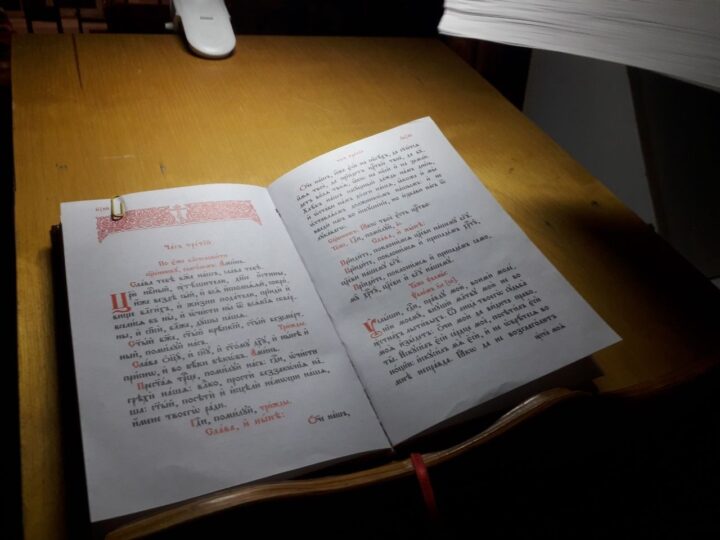 Часъ тре́тїй
По є҆́же благослови́ти
сщ҃е́нникъ, глаго́лемъ: А҆ми́нь.
Сла́ва тебѣ̀ бж҃е на́шъ, сла́ва тебѣ̀.
Цр҃ю̀ нбⷭ҇ный, ᲂу҆тѣ́шителю, дш҃е и҆́стины,
и҆́же вездѣ̀ сы́й, и҆ всѧ̑ и҆сполнѧ́ѧй, сокро́-
вище благи́хъ, и҆ жи́зни пода́телю, прїидѝ и҆
всели́сѧ въ ны̀, и҆ ѡ҆чи́сти ны̀ ѿ всѧ́кїѧ сквер-
ны, и҆ сп҃сѝ, бл҃же, дꙋ́шы на́шѧ.
Ст҃ы́й бж҃е, ст҃ы́й крѣ́пкїй, ст҃ы́й безсме́рт-
ный, поми́лꙋй на́съ. Три́жды.
Сла́ва ѻ҆ц҃ꙋ̀, и҆ сн҃ꙋ, и҆ ст҃о́мꙋ дх҃ꙋ, и҆ ны́нѣ и҆
при́снѡ, и҆ во вѣ́ки вѣкѡ́въ. А҆ми́нь.
Прест҃а́ѧ трⷪ҇це, поми́лꙋй на́съ: гдⷭ҇и, ѡ҆чи́сти
грѣхѝ на́шѧ: влⷣко, простѝ беззакѡ́нїѧ на̑-
ша: ст҃ы́й, посѣтѝ и҆ и҆сцѣлѝ не́мѡщи на́шѧ,
и҆́мене твоегѡ̀ ра́ди.
Гдⷭ҇и, поми́лꙋй, три́жды.
Сла́ва, и҆ ны́нѣ: Ѻ҆́ч҃е на́шъ,
часъ тре́тїй
Ѻ҆́ч҃е на́шъ, и҆́же є҆сѝ на нб҃сѣ́хъ, да ст҃и́тсѧ
и҆́мѧ твоѐ, да прїи́детъ црⷭ҇твїе твоѐ, да бꙋ́-
детъ во́лѧ твоѧ̀, ꙗ҆́кѡ на нб҃сѝ и҆ на землѝ.
Хлѣ́бъ на́шъ насꙋ́щный да́ждь на́мъ дне́сь,
и҆ ѡ҆ста́ви на́мъ до́лги на́шѧ, ꙗ҆́коже и҆ мы̀
ѡ҆ставлѧ́емъ должникѡ́мъ на́шымъ: и҆ не
введѝ на́съ во и҆скꙋше́нїе, но и҆зба́ви на́съ ѿ
лꙋка́вагѡ.
сщ҃е́нникъ: Ꙗ҆́кѡ твоѐ є҆́сть црⷭ҇тво:
Та́же, Гдⷭ҇и, поми́лꙋй, в҃і.
Сла́ва, и҆ ны́нѣ:
Прїиди́те, поклони́мсѧ цр҃е́ви на́шемꙋ бг҃ꙋ.
Прїиди́те, поклони́мсѧ и҆ припаде́мъ хрⷭ҇тꙋ̀,
цр҃е́ви на́шемꙋ бг҃ꙋ.
Прїиди́те, поклони́мсѧ и҆ припаде́мъ самомꙋ̀
хрⷭ҇тꙋ̀, цр҃е́ви и҆ бг҃ꙋ на́шемꙋ.
Та́же ѱалмы̀:
Ѱало́мъ ѕ҃і [16]
Оу҆слы́ши, гдⷭ҇и, пра́вдꙋ мою̀, вонмѝ моле́-
нїю моемꙋ̀, внꙋшѝ моли́твꙋ мою̀ не во
ᲂу҆стна́хъ льсти́выхъ. Ѿ лица̀ твоегѡ̀ сꙋдьба̀
моѧ̀ и҆зы́детъ: ѻ҆́чи моѝ да ви́дита правѡты̑.
И҆скꙋси́лъ є҆сѝ се́рдце моѐ, посѣти́лъ є҆сѝ
но́щїю: и҆скꙋси́лъ мѧ̀ є҆сѝ, и҆ не ѡ҆брѣ́тесѧ во
мнѣ̀ непра́вда. Ꙗ҆́кѡ да не возглаго́лютъ
ᲂу҆ста̀ моѧ̀